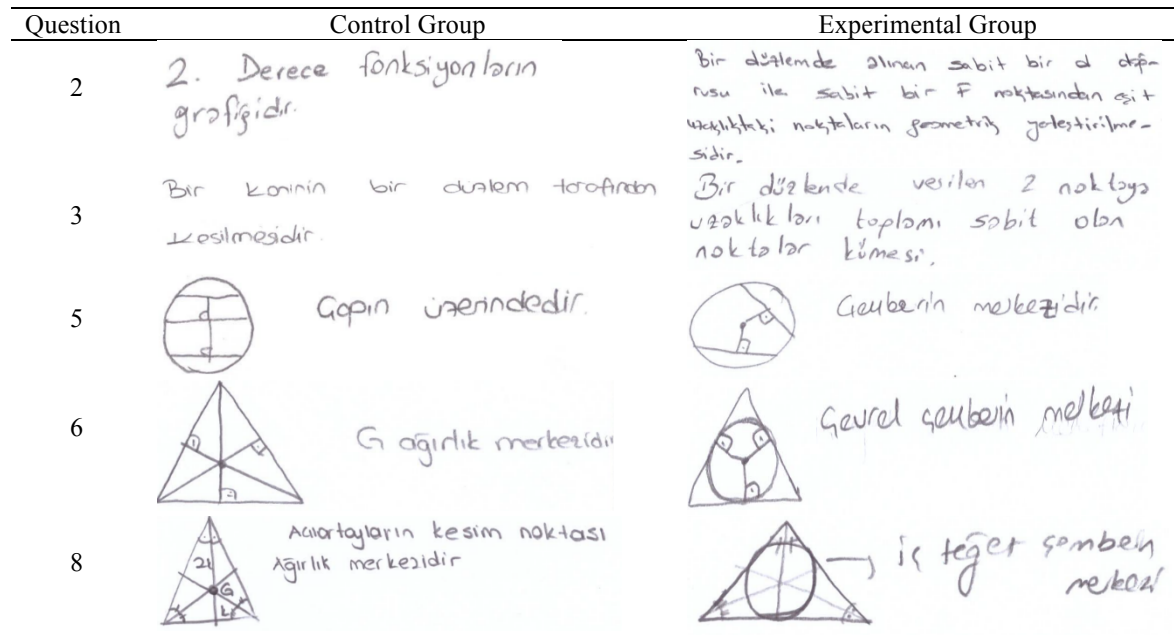 Question Control Group Experimental Group
2
2. Derece fonksiyonların
grafiğidir.
Bir düzlemde alınan sabit bir d doğ-
rusu ile sabit bir F noktasından eşit
uzaklıktaki noktaların geometrik yerleştirilme-
sidir.
3
Bir koninin bir düzlem tarafından
kesilmesidir.
Bir düzlemde verilen 2 noktaya
uzaklıkları toplamı sabit olan
noktalar kümesi.
5
Çapın üzerindedir.
Çemberin merkezidir.
6
G ağırlık merkezidir
Çevrel çemberin merkezi
8
Açıortayların kesim noktası
Ağırlık merkezidir
2k
G
k
İç teğet çemberin
merkezi